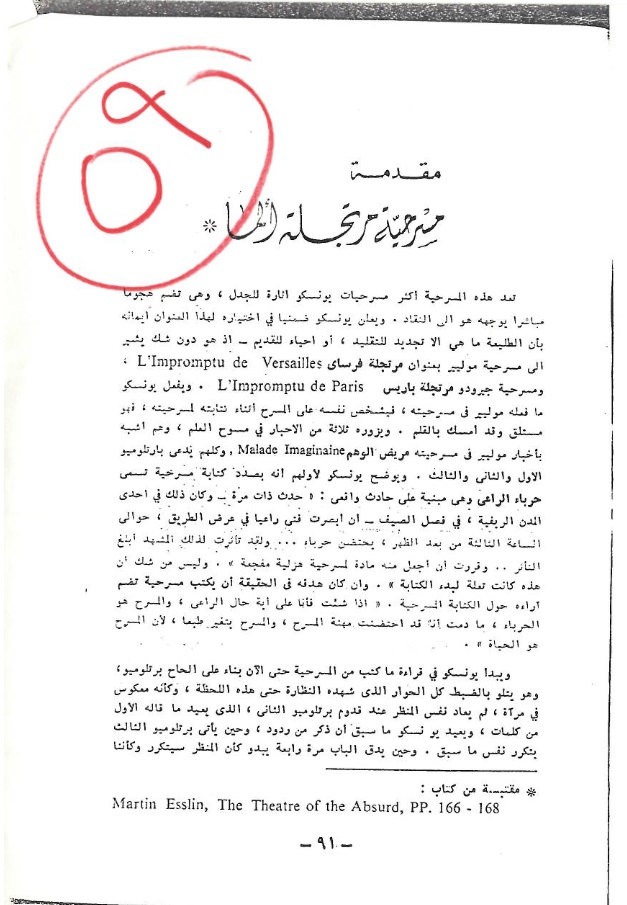 ٥٩
مقدمة
مسرحية مرتجلة ألما *
تعد هذه المسرحية أكثر مسرحيات يونسكو اثارة للجدل ، وهى تضم هجوما
مباشرا يوجهه هو الى النقاد . ويعلن يونسكو ضمنيا في اختياره لهذا العنوان أيمانه
بأن الطليعة ما هى الا تجديد للتقليد ، أو احياء للقديم ــ اذ هو دون شك يشير
الى مسرحية موليير بعنوان مرتجلة فرساى L'Impromptu de Versailles ،
ومسرحية جيرودو مرتجلة باريس L'Impromptu de Paris . ويفعل يونسكو
ما فعله موليير فى مسرحيته ، فيشخص نفسه على المسرح أثناء كتابته لمسرحيته ، فهو
مستلق وقد أمسك بالقلم . ويزوره ثلاثة من الاحبار في مسوح العلم ، وهم أشبه
بأخبار موليير فى مسرحيته مريض الوهم Malade Imaginaine ، وكلهم يدعى بارتلوميو
الاول والثانى والثالث . ويوضح يونسكو لاولهم أنه بصدد كتابة مسرحية تسمى
حرباء الراعى وهى مبنية على حادث واقعى : « حدث ذات مرة ــ وكان ذلك في احدى
المدن الريفية ، فى فصل الصيف ــ أن أبصرت فتى راعيا في عرض الطريق ، حوالى
الساعة الثالثة من بعد الظهر ، يحتضن حرباء ... ولقد تأثرت لذلك المشهد أبلغ
التأثر .. وقررت أن أجعل منه مادة لمسرحية هزلية مفجعة » . وليس من شك أن
هذه كانت تعلة لبدء الكتابة » . وان كان هدفه فى الحقيقة أن يكتب مسرحية تضم
آراءه حول الكتابة المسرحية . « اذا شئت فأنا على أية حال الراعى ، والمسرح هو
الحرباء ، ما دمت أنا قد احتضنت مهنة المسرح ، والمسرح يتغير طبعا ، لأن المسرح
هو الحياة » .
ويبدأ يونسكو في قراءة ما كتب من المسرحية حتى الآن بناء على الحاح برتلوميو،
وهو يتلو بالضبط كل الحوار الذى شهده النظارة حتى هذه اللحظة ، وكأنه معكوس
في مرآة ، ثم يعاد نفس المنظر عند قدوم برتلوميو الثانى ، الذى يعيد ما قاله الأول
من كلمات ، ويعيد يو نسكو ما سبق أن ذكر من ردود ، وحين يأتى برتلوميو الثالث
يتكرر نفس ما سبق . وحين يدق الباب مرة رابعة يبدو كأن المنظر سيتكرر وكأننا
* مقتبسة من كتاب :
Martin Esslin, The Theatre of the Absurd, PP. 166 - 168
– ٩١ –